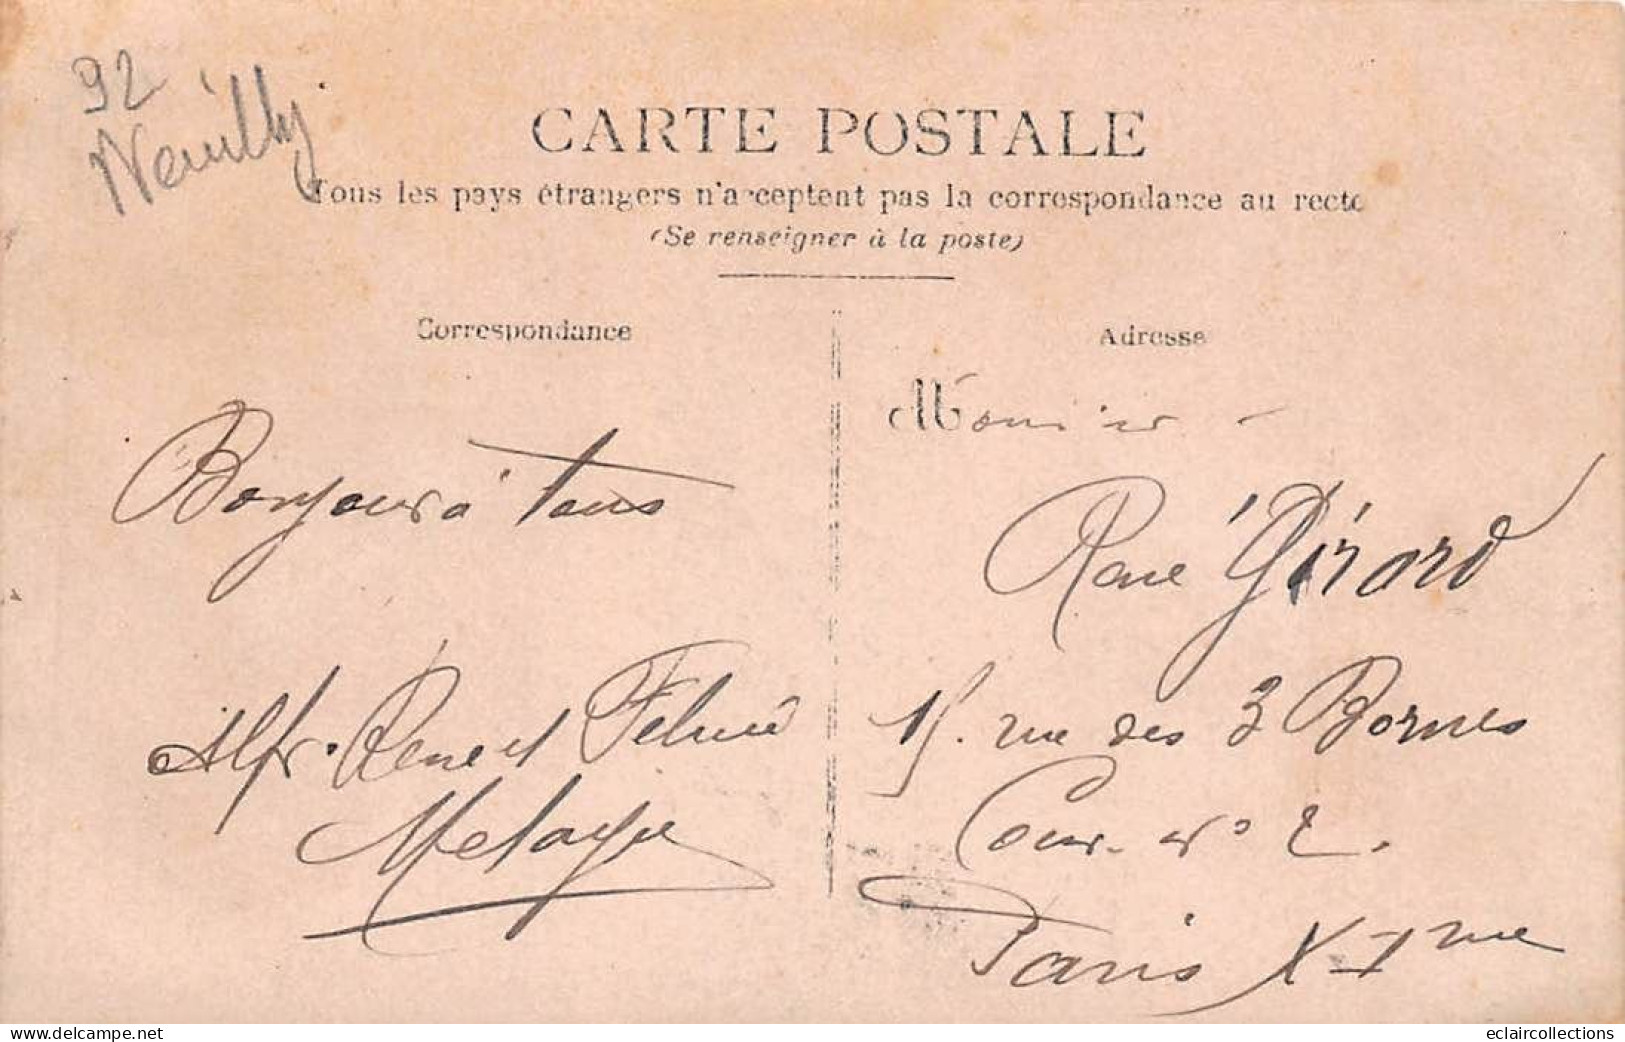 92
Neuilly
CARTE POSTALE
Tous les pays étrangers n'acceptent pas la correspondance au recto
(Se renseigner à la poste)
Correspondance
Adresse
Bonjour à tous
Alfr. René et
Monsieur
René Girard
15. rue des 3 Bornes
Cour n° 2.
Paris XIme
delcampe.net
eclaircollections